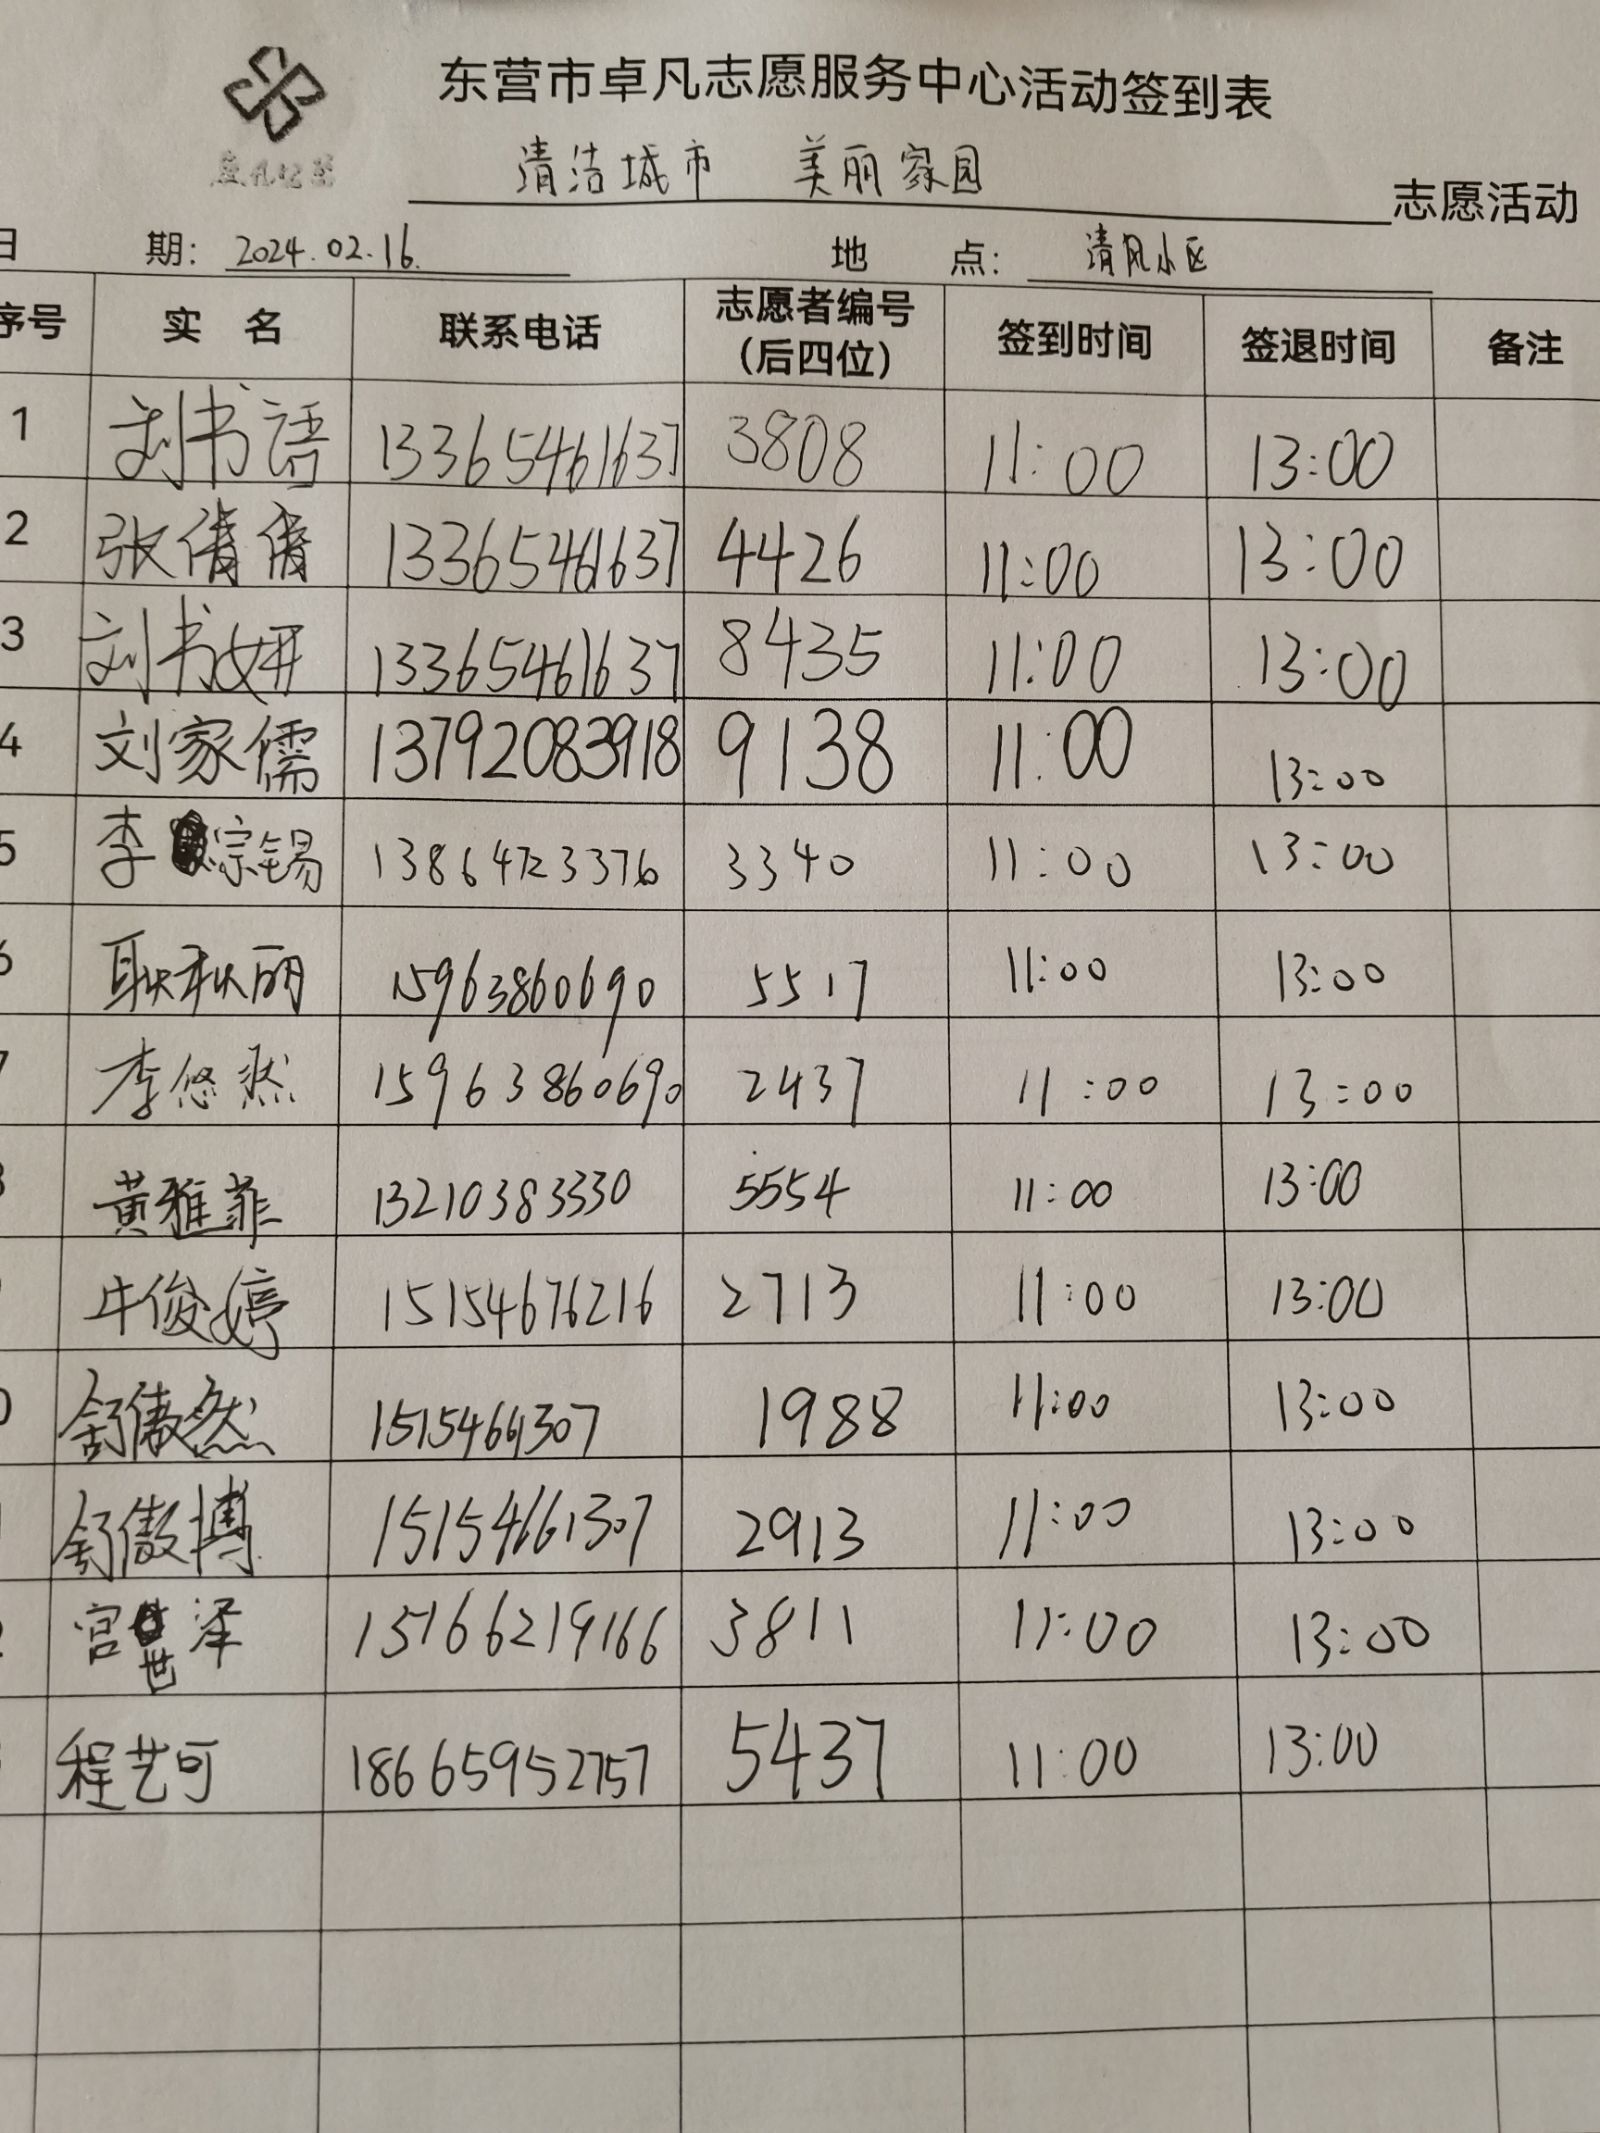 东营市卓凡志愿服务中心活动签到表
清洁城市 美丽家园 志愿活动
日 期: 2024.02.16. 地 点: 清风小区
序号 实 名 联系电话 志愿者编号(后四位) 签到时间 签退时间 备注
1 刘书语 13365461637 3808 11:00 13:00
2 张倩倩 13365461637 4426 11:00 13:00
3 刘书妍 13365461637 8435 11:00 13:00
4 刘家儒 13792083918 9138 11:00 13:00
5 李宗锡 13864723376 3340 11:00 13:00
6 耿秋丽 15963860690 5517 11:00 13:00
7 李悠然 15963860690 2437 11:00 13:00
8 黄雅菲 13210383330 5554 11:00 13:00
牛俊婷 15154676216 2713 11:00 13:00
0 舒傲然 1988 11:00 13:00
1 舒傲博 15154661307 2913 11:00 13:00
2 宫世泽 15166219166 3811 11:00 13:00
程艺可 18665952757 5437 11:00 13:00